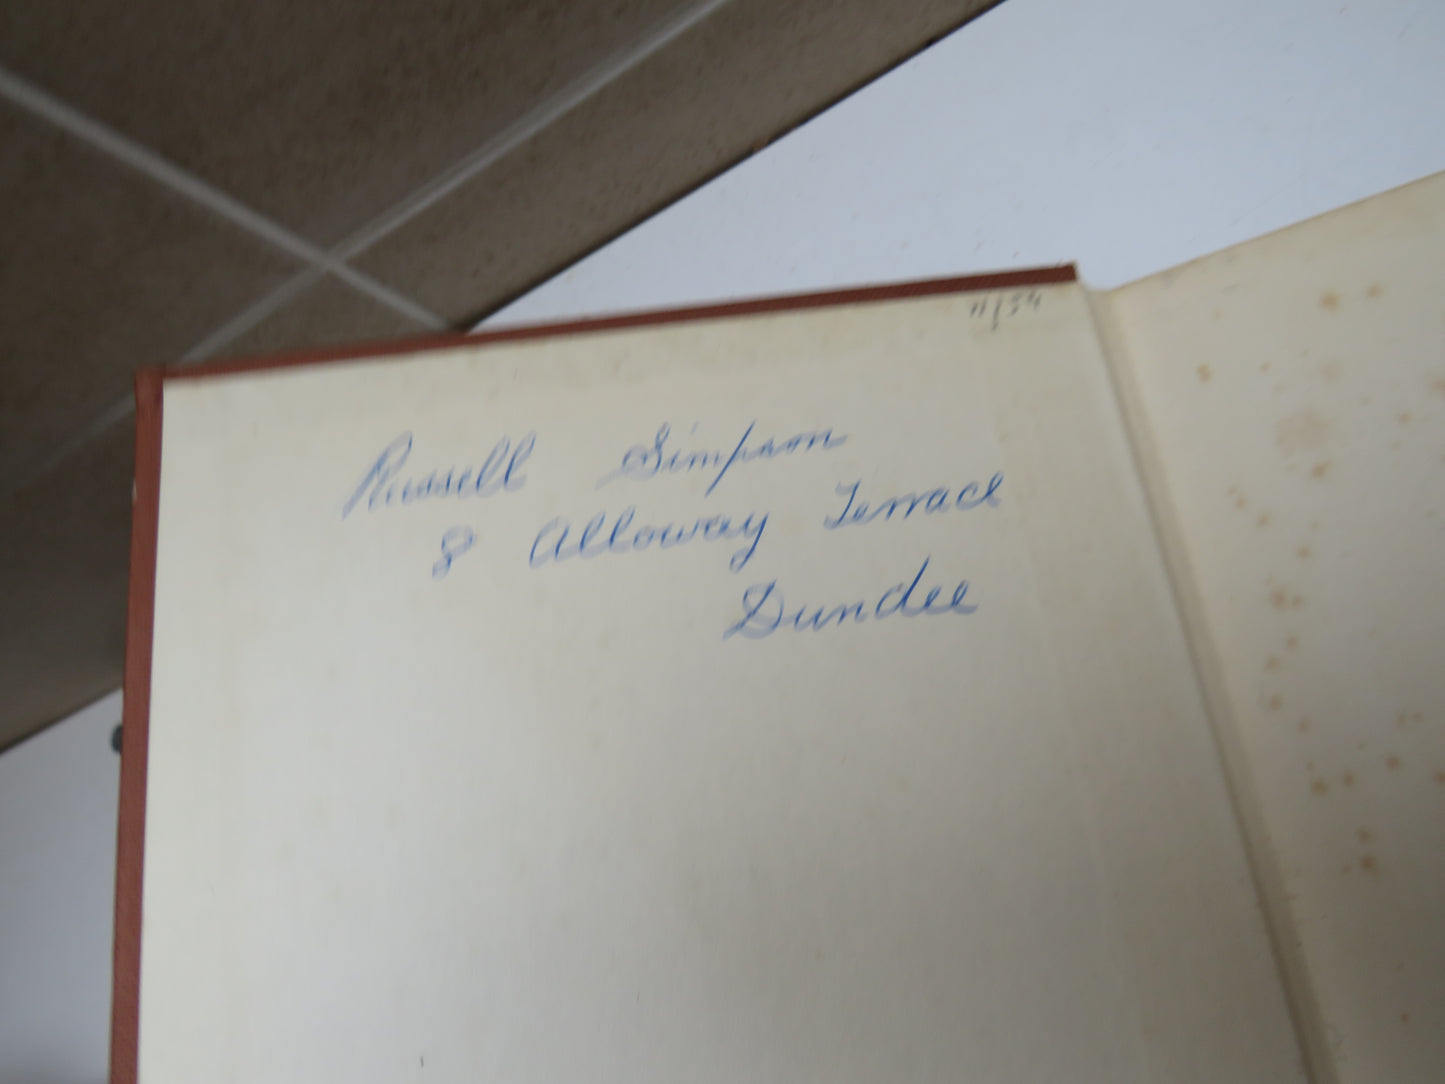 11/54
Russell Simpson
8 Alloway Terrace
Dundee